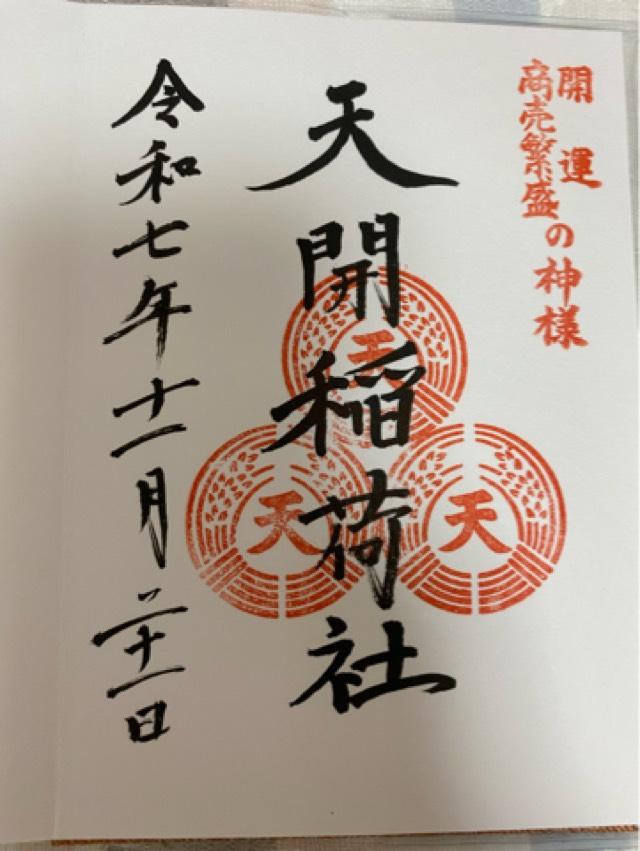 開運
商売繁盛
の神様
天開稲荷社
天
天
天
令和七年十一月二十一日